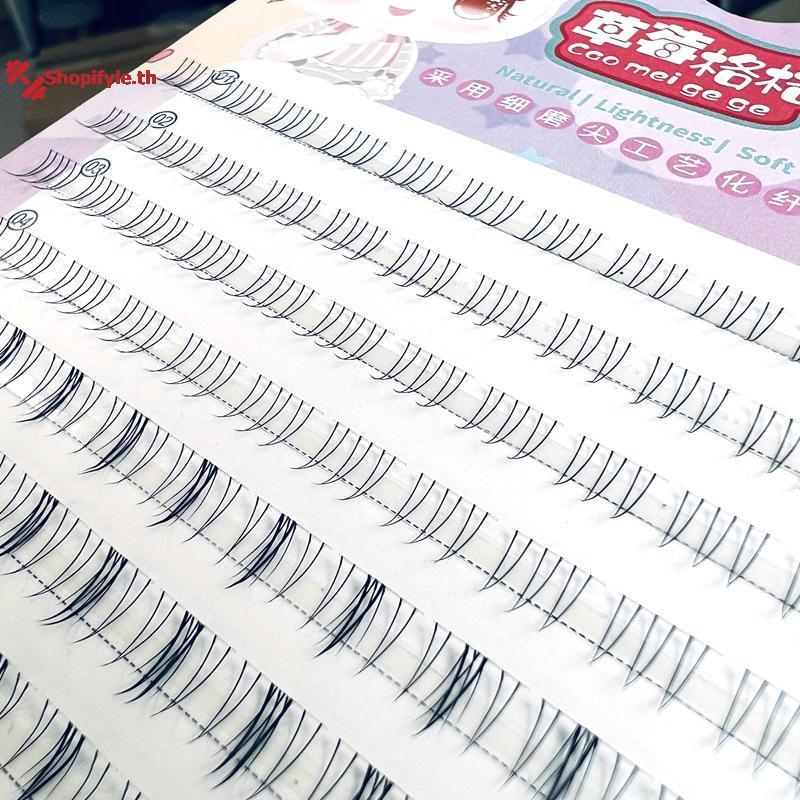 Shopifyle.th
草莓格格
Cao mei ge ge
Natural | Lightness | Soft
采用细磨尖工艺化纤
01
02
03
04